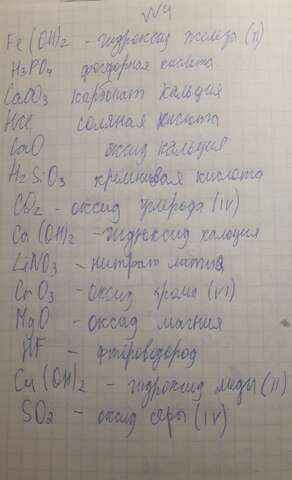 №4
Fe(OH)2 - гидроксид железа (II)
H3PO4 фосфорная кислота
CaCO3 карбонат кальция
HCl соляная кислота
CaO оксид кальция
H2SiO3 кремниевая кислота
CO2 - оксид углерода (IV)
Ca(OH)2 - гидроксид кальция
LiNO3 - нитрат лития
CrO3 - оксид хрома (VI)
MgO - оксид магния
HF - фтороводород
Cu(OH)2 - гидроксид меди (II)
SO2 - оксид серы (IV)